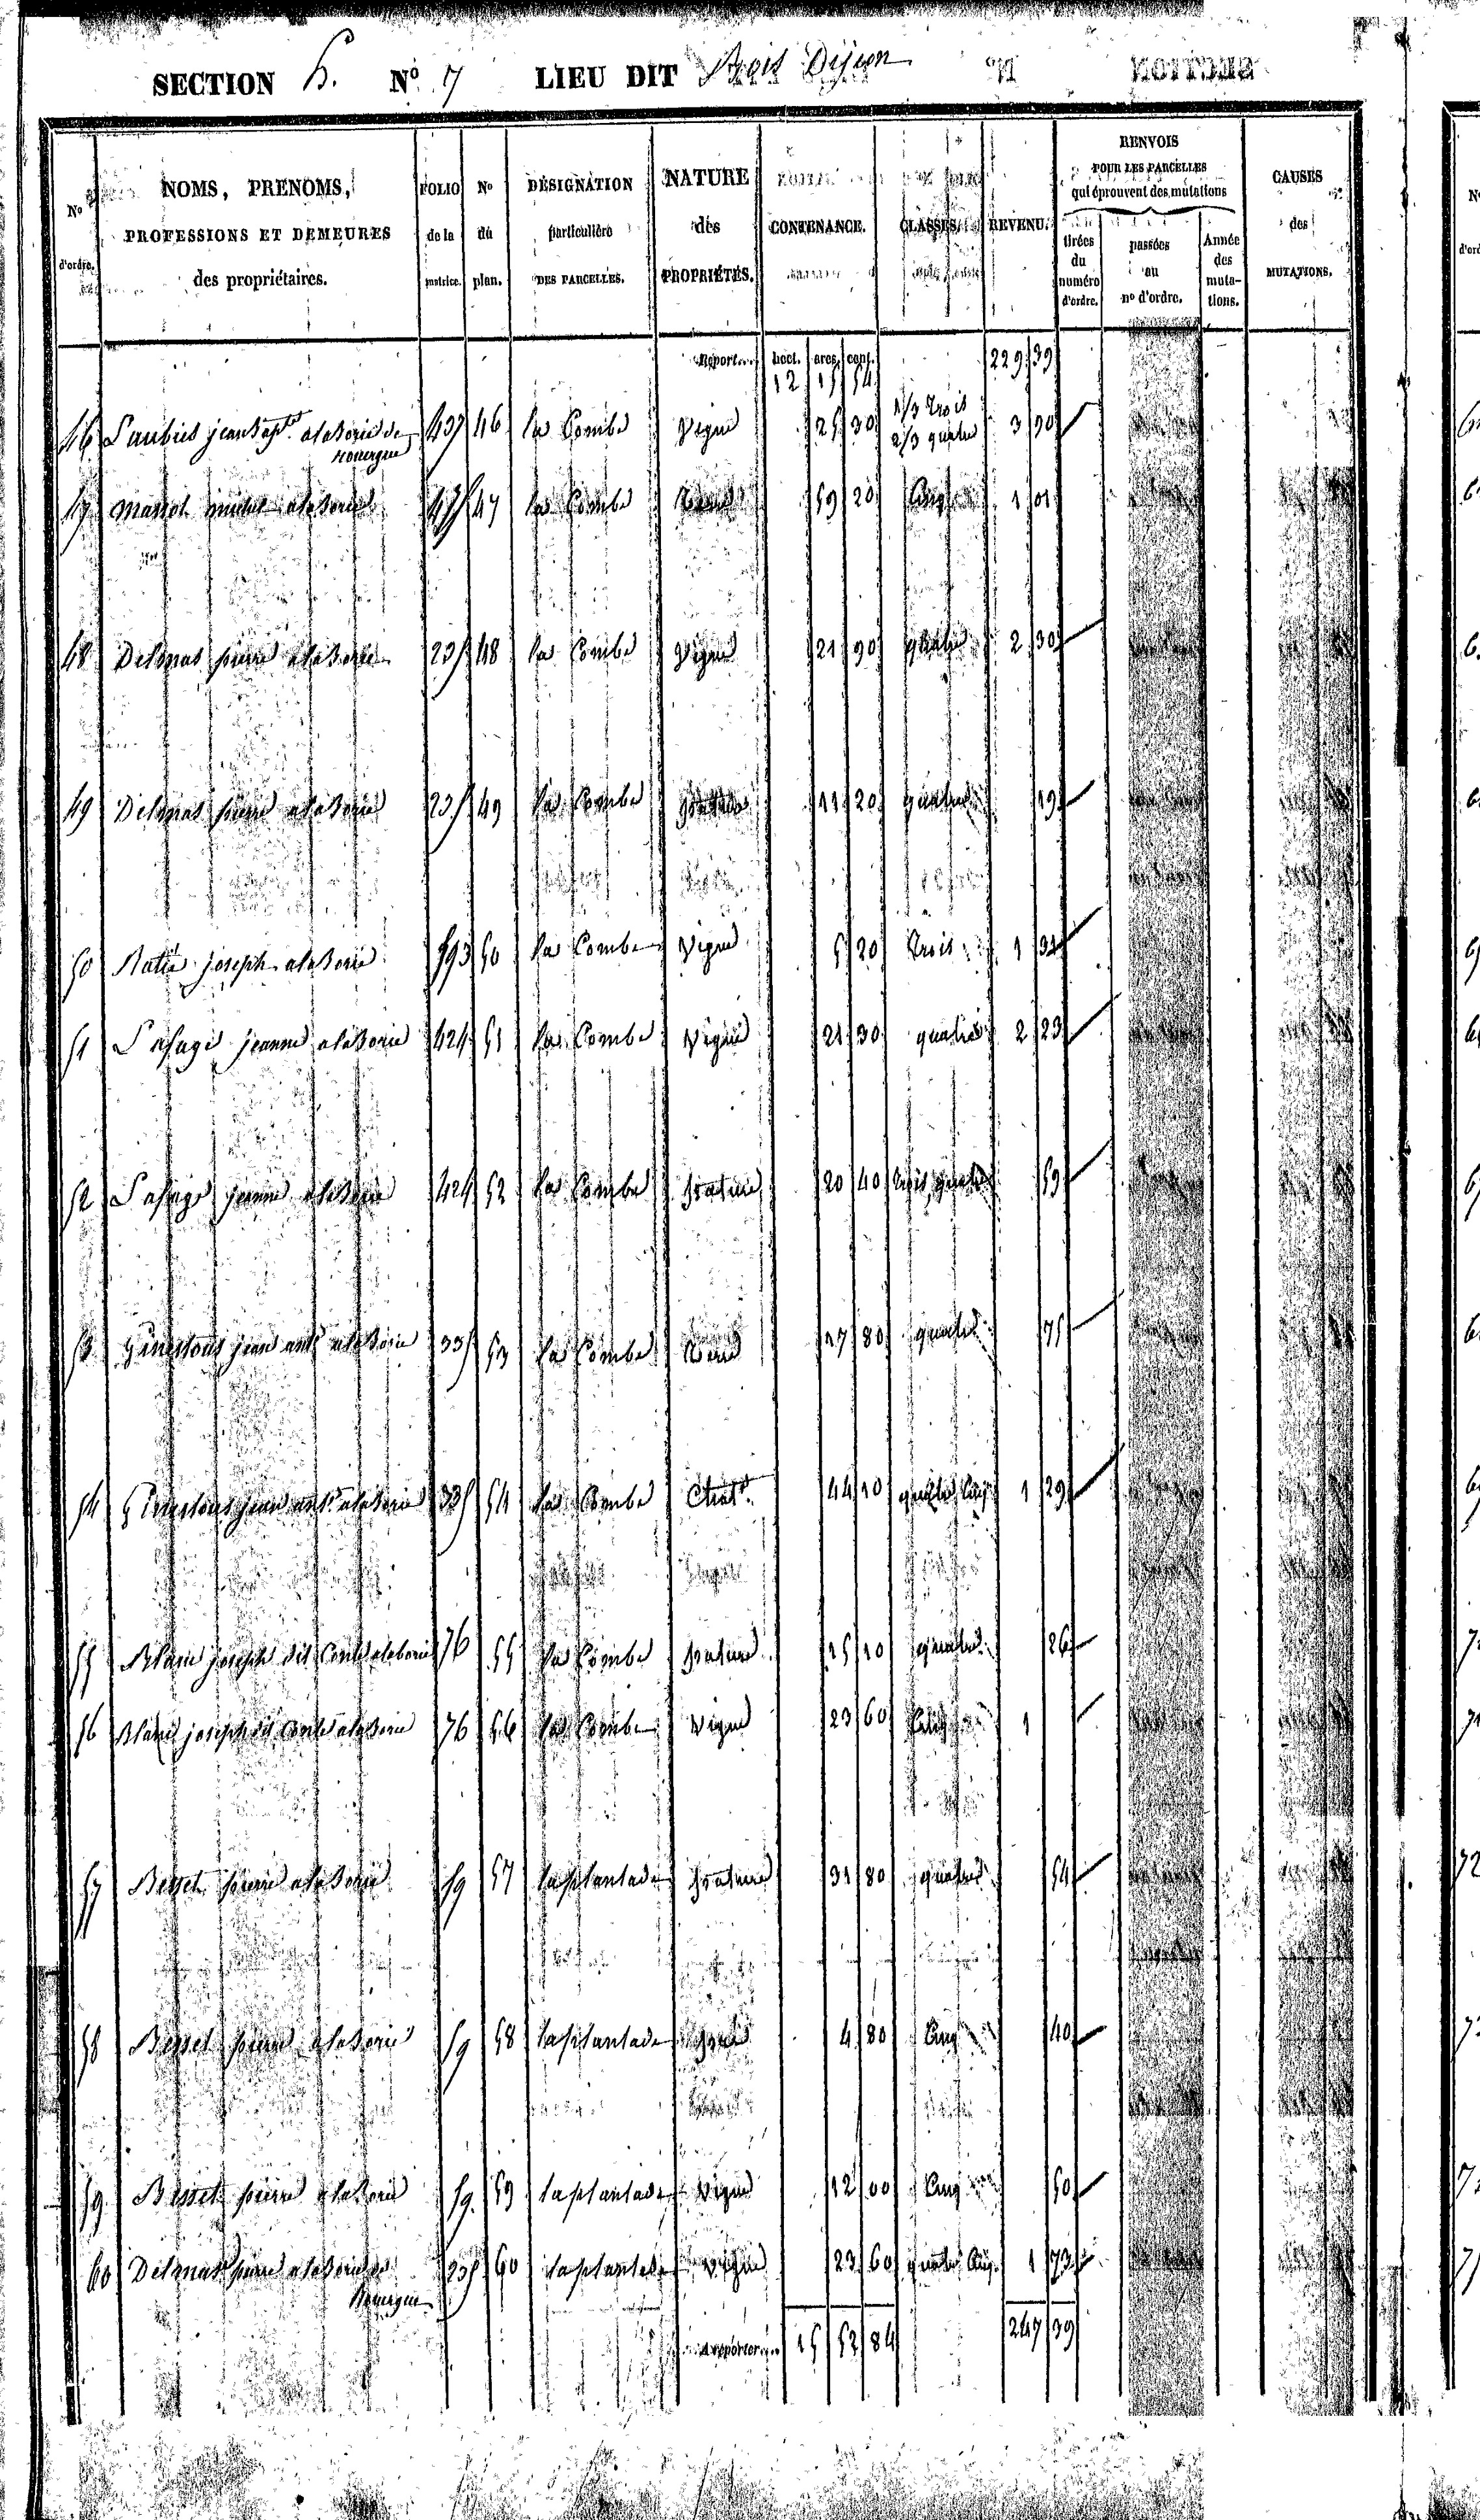 SECTION h. No 7 LIEU DIT Bois Dijon
No d'ordre.
NOMS, PRENOMS,
PROFESSIONS ET DEMEURES
des propriétaires.
FOLIO de la matrice.
No du plan.
DÉSIGNATION particulière DES PARCELLES.
NATURE des PROPRIÉTÉS.
CONTENANCE.
CLASSES.
REVENU.
RENVOIS
POUR LES PARCELLES
qui éprouvent des mutations
tirées du numéro d'ordre.
passées au no d'ordre.
Année des mutations.
CAUSES des MUTATIONS.
Report... hect. ares cent. 229 39
12 15 54
46 jean Bapt. alaborie de 437 46 la Combe Vigne 25 30 1/3 trois 3 90
rouergue 2/3 quatre
47 alaborie 47 la Combe 59 20 Cinq 1 01
48 Delmas pierre alaborie 235 48 la Combe Vigne 21 90 quatre 2 30
49 Delmas pierre alaborie 235 49 la Combe pature 11 20 quatre 19
50 Ratié joseph alaborie 593 50 la Combe Vigne 5 20 trois 1
51 Lafage jeanne alaborie 424 51 la Combe Vigne 21 30 quatre 2 23
52 Lafage jeanne alaborie 424 52 la Combe pature 20 40 trois, quatre 59
53 Ginestous jean ant. alaborie 335 53 la Combe 17 80 quatre 75
54 Ginestous jean ant. alaborie 335 54 la Combe Chat. 44 10 quatre Cinq 1 29
55 Blanc joseph dit Conte alaborie 76 55 la Combe pature 15 10 quatre 26
56 Blanc joseph dit Conte alaborie 76 56 la Combe Vigne 23 60 Cinq 1
57 Besset pierre alaborie 59 57 laplantade pature 31 80 quatre 54
58 Besset pierre alaborie 59 58 laplantade 4 80 Cinq 40
59 Besset pierre alaborie 59 59 laplantade Vigne 12 00 Cinq 50
60 Delmas pierre alaborie de 235 60 laplantade Vigne 23 60 quatre Cinq 1 73
Rouergue
A reporter... 15 52 84 247 39